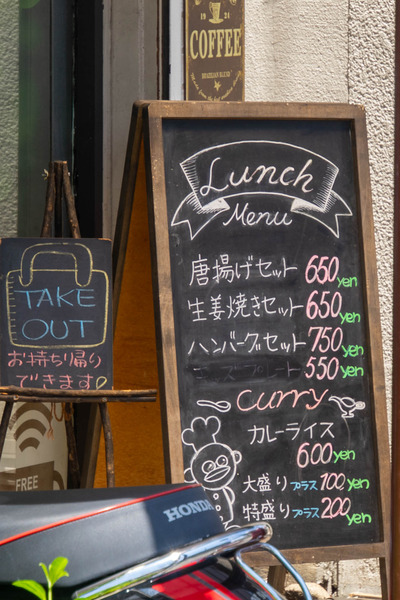 19 21
COFFEE
BRAZILIAN BLEND
Lunch
Menu
唐揚げセット 650yen
生姜焼きセット 650yen
ハンバーグセット 750yen
ーズプレート 550yen
curry
カレーライス
600yen
大盛り プラス 100yen
特盛り プラス 200yen
TAKE
OUT
お持ち帰り
できます
FREE
HONDA